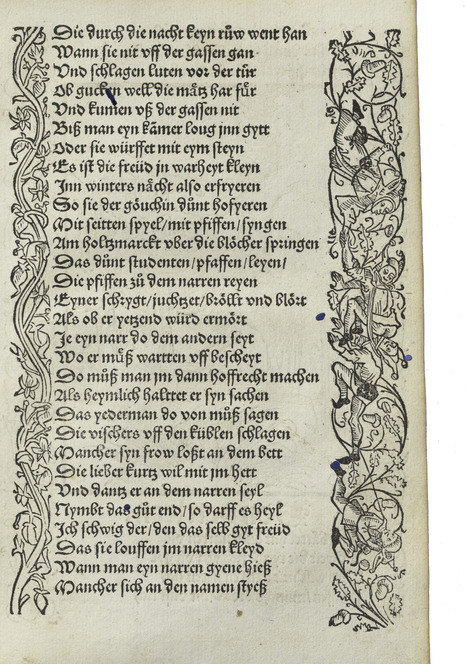 Die durch die nacht keyn růw went han
Wann sie nit vff der gassen gan
Vnd schlagen luten vor der tür
Ob gucken well die mätz har für
Vnd kumen vß der gassen nit
Biß man eyn kamer loug jnn gytt
Oder sie würffet mit eym steyn
Es ist die freüd jn warheyt kleyn
Jnn winters nächt also erfryeren
So sie der göuchin dünt hofyeren
Mit seitten spyel/mit pfiffen/syngen
Am holtzmarckt vber die blöcher springen
Das dünt studenten/pfaffen/leyen/
Die pfiffen zů dem narren reyen
Eyner schrygt/juchtzet/bröllt vnd blört
Als ob er yetzend würd ermört
Je eyn narr do dem andern seyt
Wo er můß wartten vff bescheyt
Do můß man jm dann hoffrecht machen
Als heymlich halttet er syn sachen
Das yederman do von můß sagen
Die vischers vff den küblen schlagen
Mancher syn frow loßt an dem bett
Die lieber kurtz wil mit jm hett
Vnd dantz er an dem narren seyl
Nymbt das gůt end/so darff es heyl
Jch schwig der/den das selb gyt freüd
Das sie louffen jm narren kleyd
Wann man eyn narren gyene hieß
Mancher sich an den namen styeß